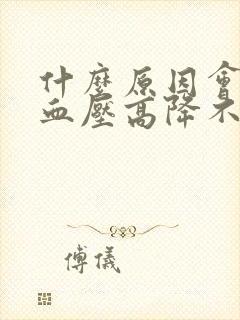 什麼原因會
血壓高降不
傅儀